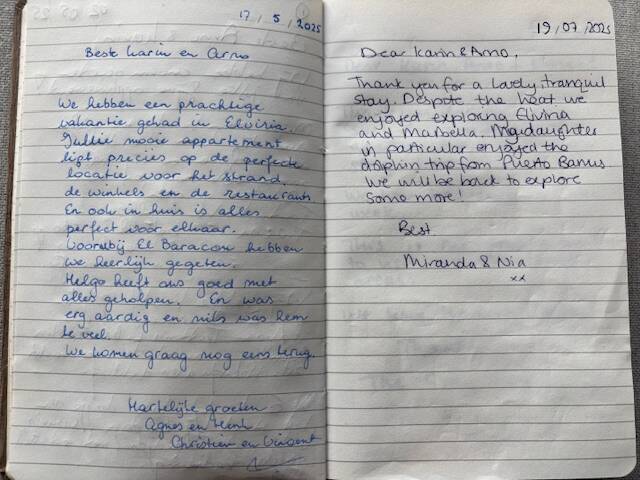 17/5/2025
Beste Karin en Arno
We hebben een prachtige
vakantie gehad in Elviria
Jullie mooie appartement
ligt precies op de perfecte
locatie voor het strand,
de winkels en de restaurants
En ook in huis is alles
perfect voor elkaar.
Voorbij El Baracon hebben
we heerlijk gegeten.
Helga heeft ons goed met
alles geholpen. En was
erg aardig en niks was hem
te veel.
We komen graag nog eens terug.
Hartelijke groeten
Agnes en Henk
Christien en Vincent
19/07/2025
Dear Karin & Arno,
Thank you for a lovely, tranquil
stay. Despite the heat we
enjoyed exploring Elviria
and Marbella. My daughter
in particular enjoyed the
dolphin trip from Puerto Banus
We will be back to explore
some more!
Best
Miranda & Nia
xx